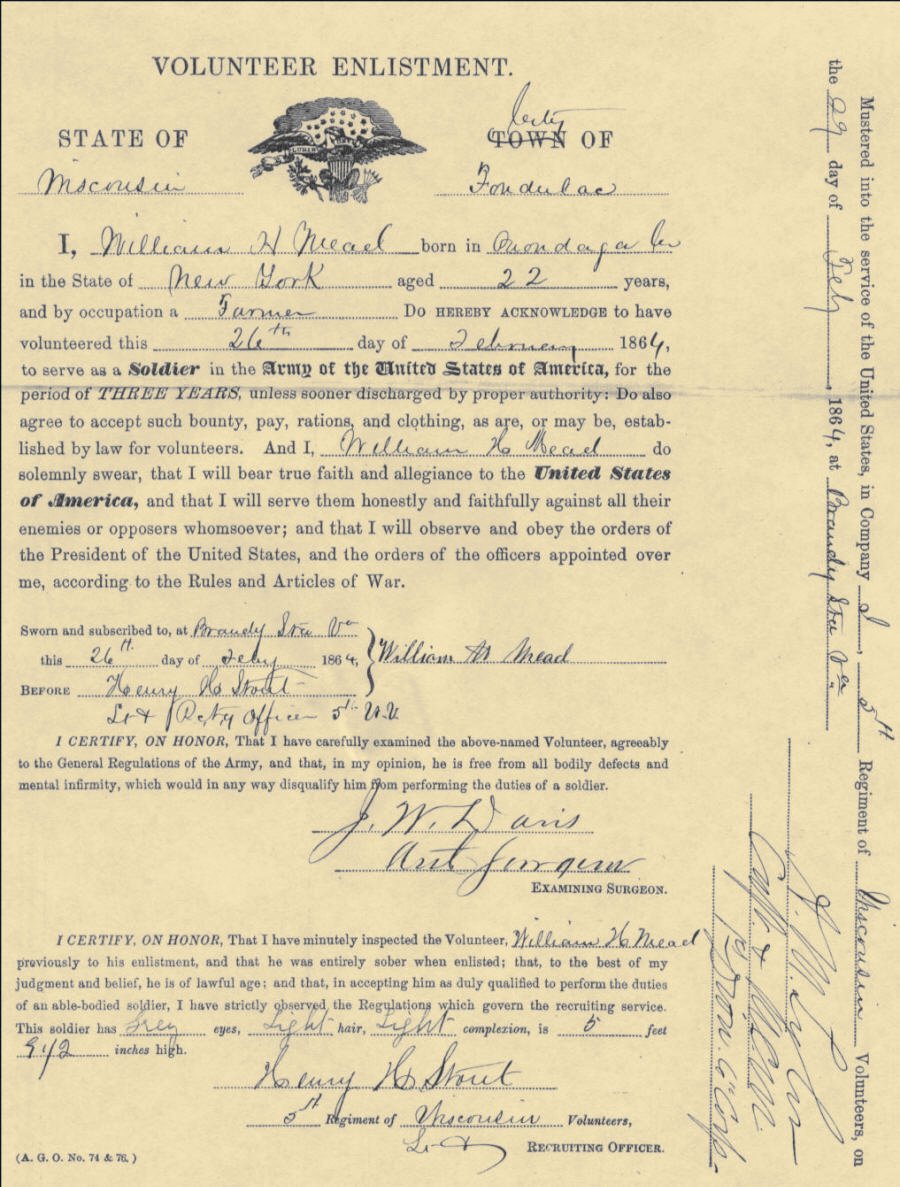 VOLUNTEER ENLISTMENT.
STATE OF
Wisconsin
City
TOWN OF
Fondulac
I, William H Mead born in Onondaga Co
in the State of New York aged 22 years,
and by occupation a Farmer Do HEREBY ACKNOWLEDGE to have
volunteered this 26th day of February 1864,
to serve as a Soldier in the Army of the United States of America, for the
period of THREE YEARS, unless sooner discharged by proper authority: Do also
agree to accept such bounty, pay, rations, and clothing, as are, or may be, estab-
lished by law for volunteers. And I, William H Mead do
solemnly swear, that I will bear true faith and allegiance to the United States
of America, and that I will serve them honestly and faithfully against all their
enemies or opposers whomsoever; and that I will observe and obey the orders of
the President of the United States, and the orders of the officers appointed over
me, according to the Rules and Articles of War.
Sworn and subscribed to, at Brandy Sta Va
this 26th day of Feby 1864,
William H Mead
BEFORE Henry H Stout
Lt & Rctg Officer 5th W.V.
I CERTIFY, ON HONOR, That I have carefully examined the above-named Volunteer, agreeably
to the General Regulations of the Army, and that, in my opinion, he is free from all bodily defects and
mental infirmity, which would in any way disqualify him from performing the duties of a soldier.
J. W. Davis
Asst Surgeon
EXAMINING SURGEON.
I CERTIFY, ON HONOR, That I have minutely inspected the Volunteer, William H Mead
previously to his enlistment, and that he was entirely sober when enlisted; that, to the best of my
judgment and belief, he is of lawful age; and that, in accepting him as duly qualified to perform the duties
of an able-bodied soldier, I have strictly observed the Regulations which govern the recruiting service.
This soldier has Grey eyes, Light hair, Light complexion, is 5 feet
9 1/2 inches high.
Henry H Stout
5th Regiment of Wisconsin Volunteers,
Lt & RECRUITING OFFICER.
(A. G. O. No. 74 & 76.)
Mustered into the service of the United States, in Company I, 5th Regiment of Wisconsin Volunteers, on
the 29 day of Feby, 1864, at Brandy Sta Va
Capt. &
1st Div. 6th Corps.